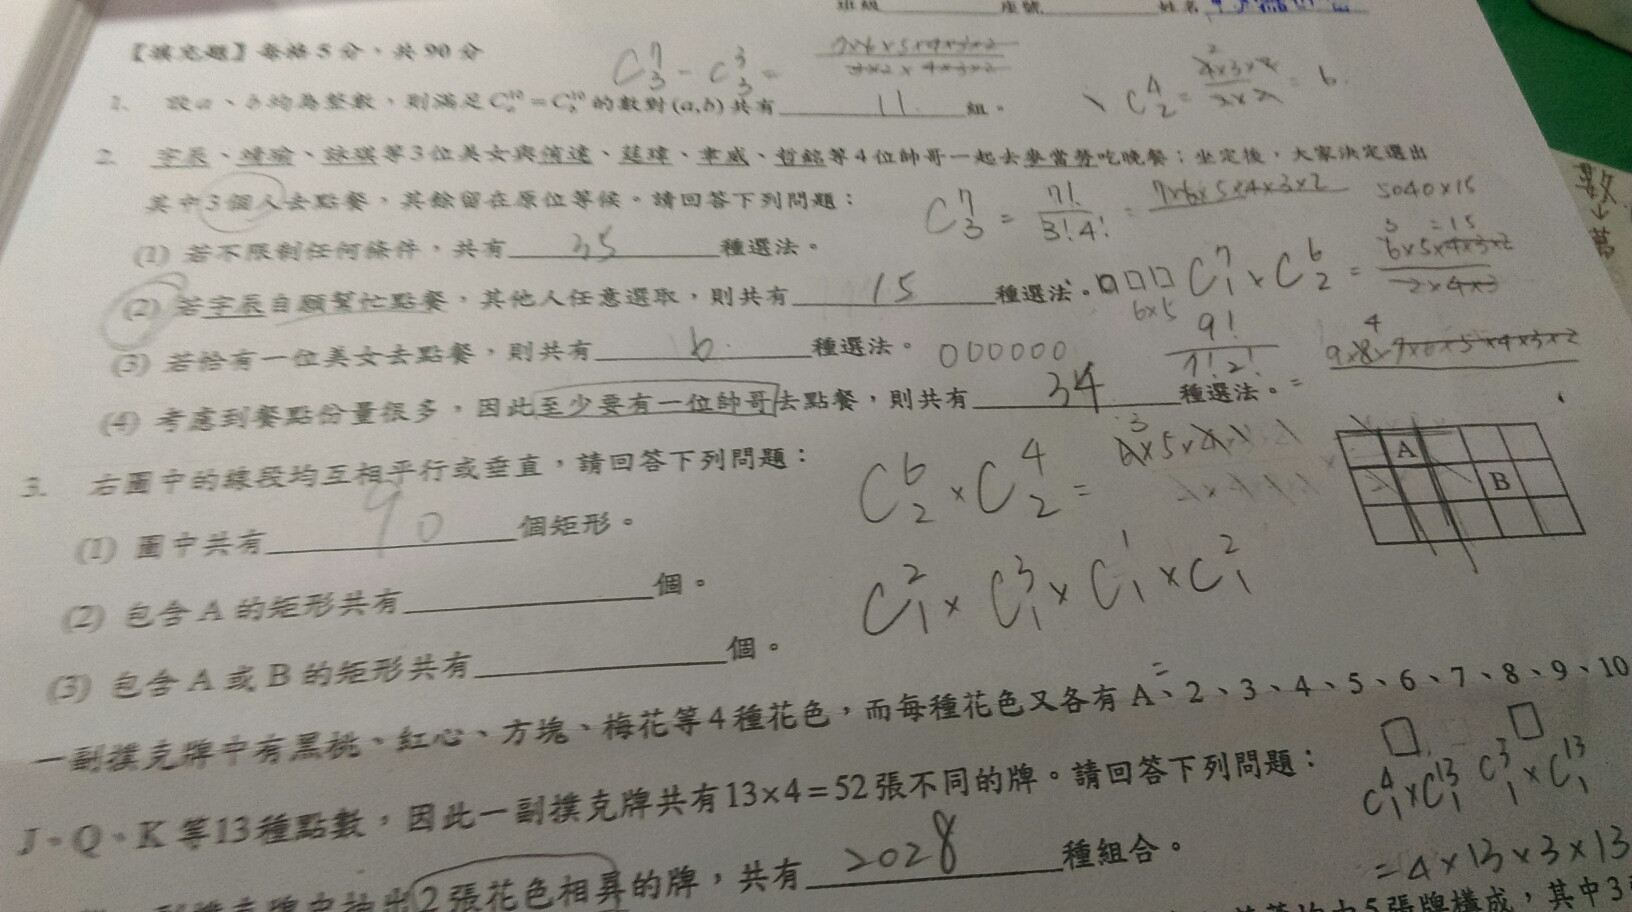 班級 座號 姓名
【填充題】每格5分、共90分
C⁷₃ - C³₃ =
1. 設a、b均為整數，則滿足C¹⁰ₐ = C¹⁰_b 的數對(a,b)共有 11 組。
C⁴₂ = = 6
2. 宇辰、晴瑜、詠琪等3位美女與 等4位帥哥一起去麥當勞吃晚餐；坐定後，大家決定選出
其中3個人去點餐，其餘留在原位等候。請回答下列問題：
C⁷₃ = 7!/3!4! = 7×6×5×4×3×2 5040×15
(1) 若不限制任何條件，共有 35 種選法。
=15
(2) 若宇辰自願幫忙點餐，其他人任意選取，則共有 15 種選法。
□□□ C⁷₁ × C⁶₂ = 6×5×4×3×2/2×4×3
6×5
(3) 若恰有一位美女去點餐，則共有 6 種選法。
000000 9!/7!2! = 9×8×7×6×5×4×3×2
(4) 考慮到餐點份量很多，因此至少要有一位帥哥去點餐，則共有 34 種選法。
3. 右圖中的線段均互相平行或垂直，請回答下列問題：
A
B
C⁶₂ × C⁴₂ =
(1) 圖中共有 90 個矩形。
(2) 包含A的矩形共有 個。
C²₁ × C³₁ × C¹₁ × C²₁
(3) 包含A或B的矩形共有 個。
=
一副撲克牌中有黑桃、紅心、方塊、梅花等4種花色，而每種花色又各有A、2、3、4、5、6、7、8、9、10
J、Q、K等13種點數，因此一副撲克牌共有13×4=52張不同的牌。請回答下列問題：
□ □
C⁴₁×C¹³₁ C³₁×C¹³₁
=4×13×3×13
抽出2張花色相異的牌，共有 2028 種組合。
5張牌構成，其中3
數
↓